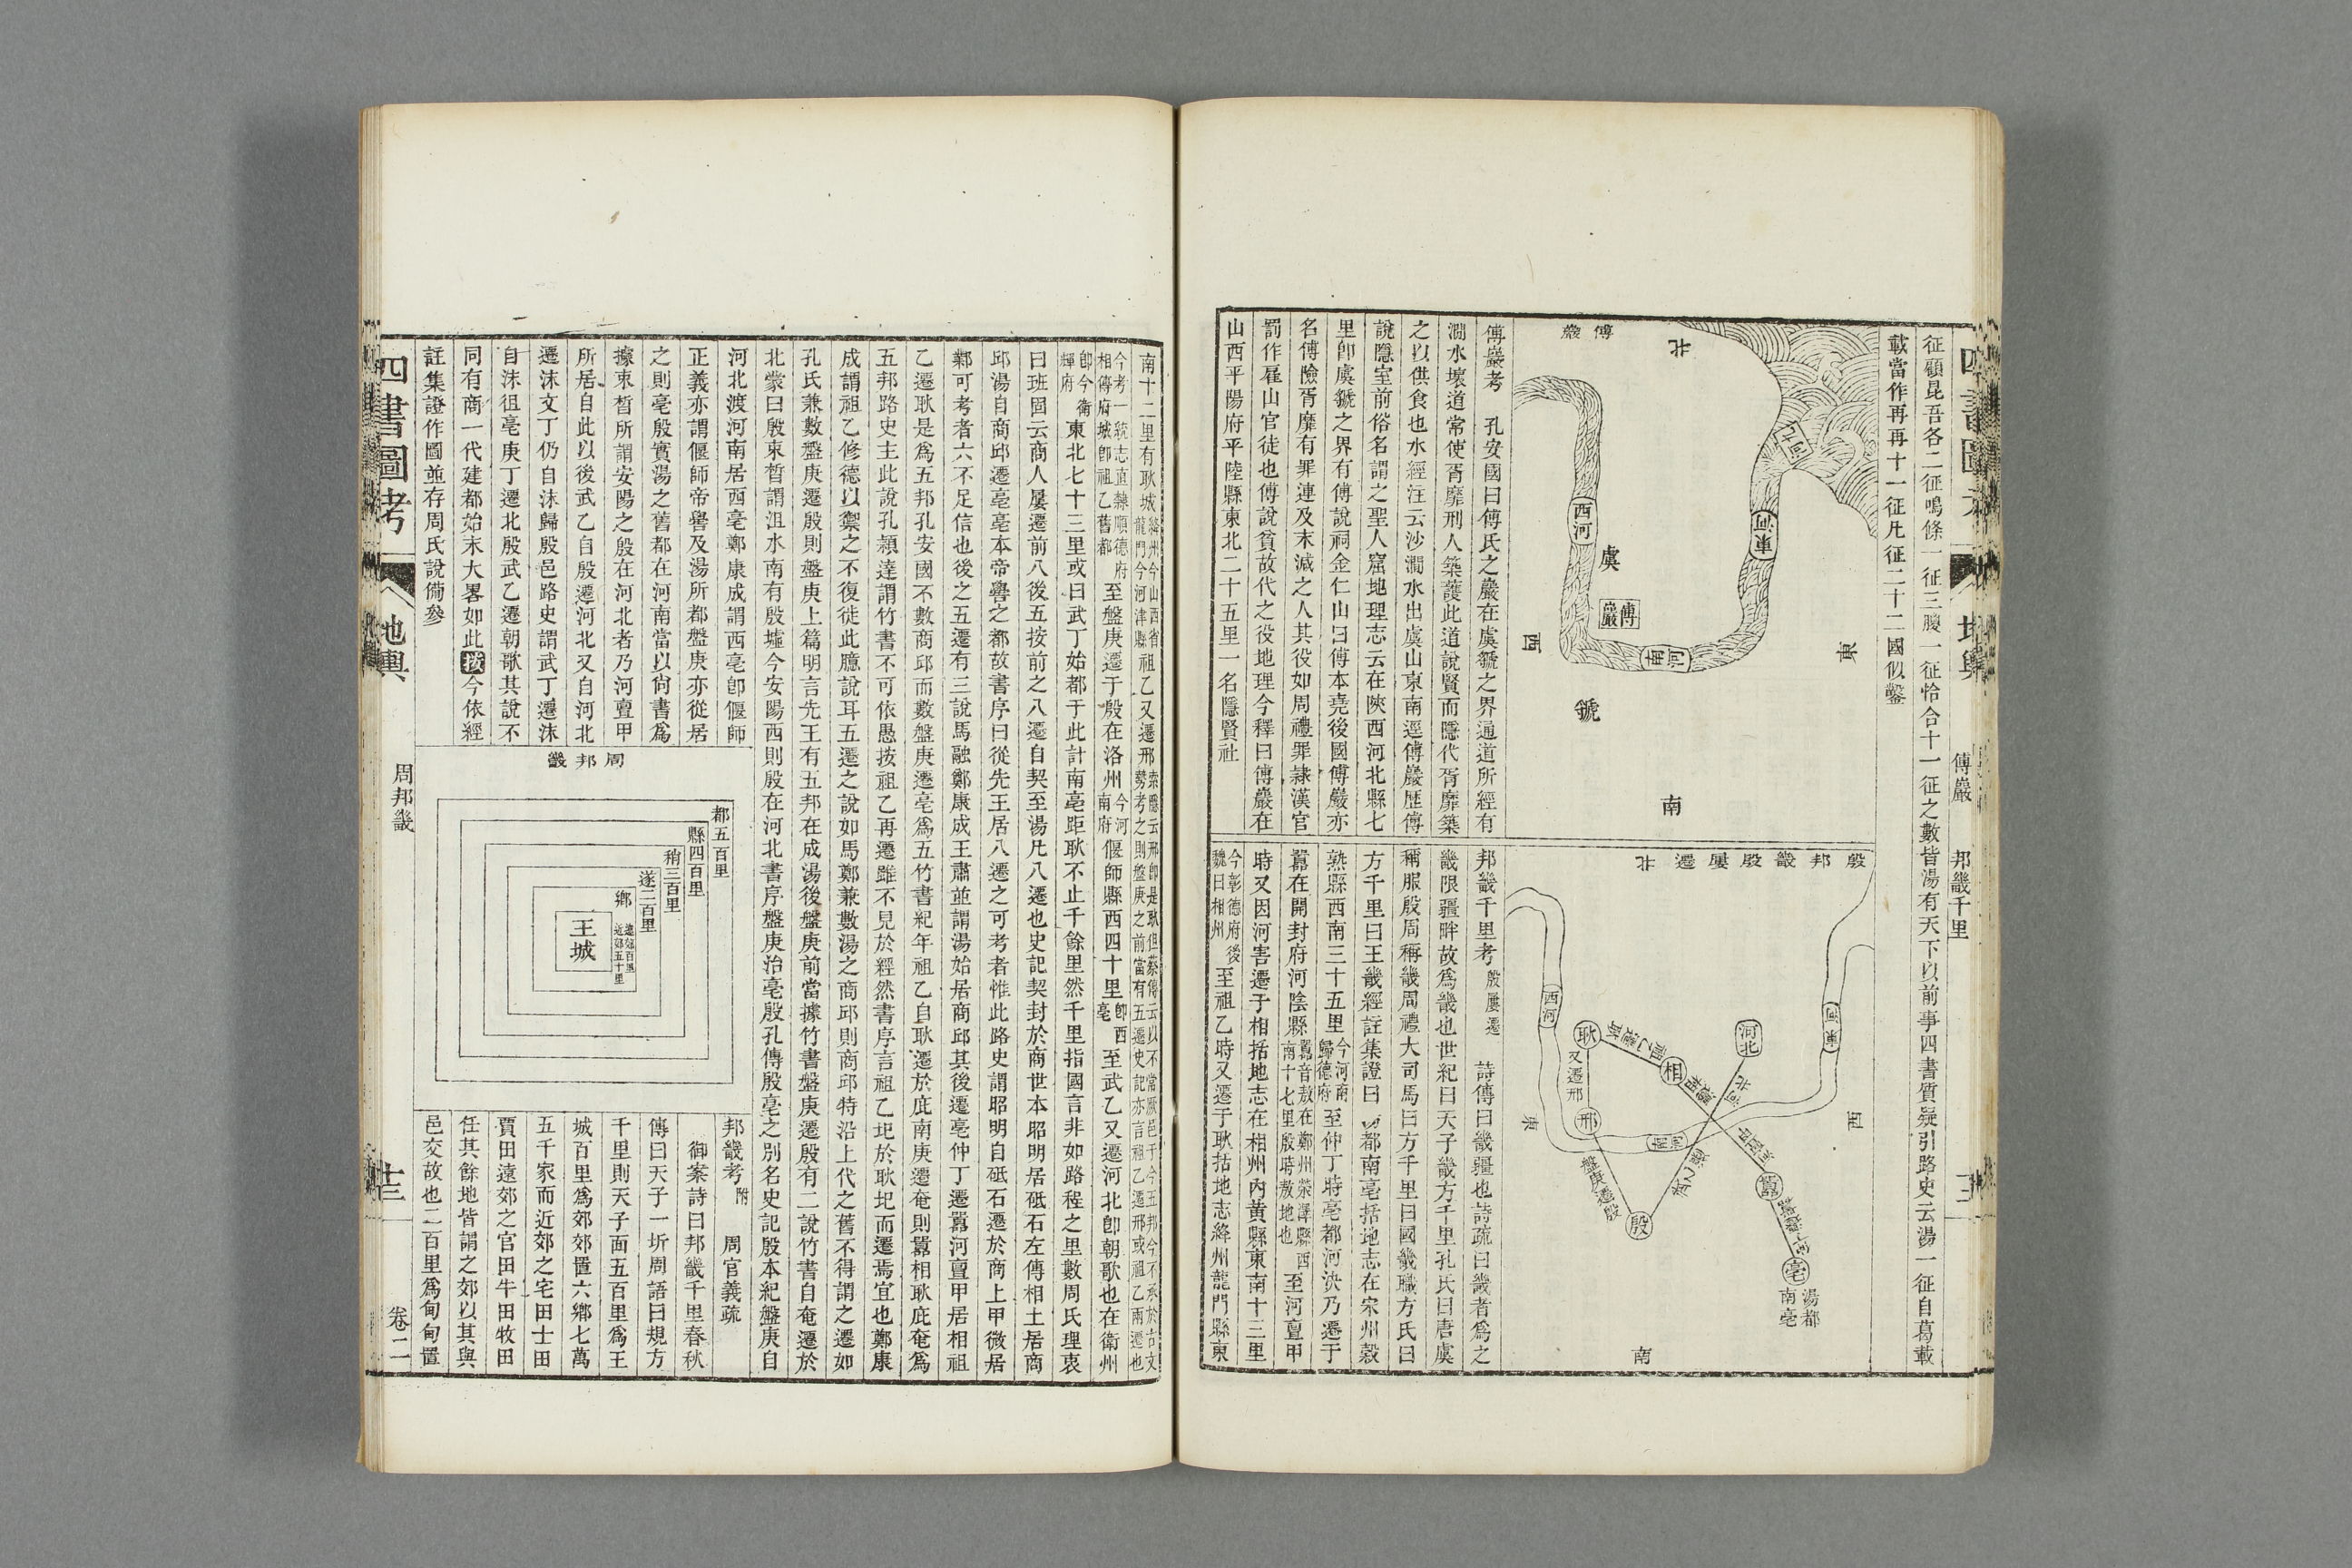 征顧昆吾各二征鳴條一征三朡一征恰合十一征之數皆湯有天下以前事四書質疑引路史云湯一征自葛載
載當作再再十一征凡征二十二國似鑿
傅巖
北
河北
河東
西河
虞
傅巖
河南
東
西
虢
南
傅巖考 孔安國曰傅氏之巖在虞虢之界通道所經有
澗水壞道常使胥靡刑人築護此道說賢而隱代胥靡築
之以供食也水經注云沙澗水出虞山東南逕傅巖歷傅
說隱室前俗名謂之聖人窟地理志云在陜西河北縣七
里卽虞虢之界有傅說祠金仁山曰傅本堯後國傅巖亦
名傅險胥靡有罪連及末減之人其役如周禮罪隸漢官
罰作雇山官徒也傅說貧故代之役地理今釋曰傅巖在
山西平陽府平陸縣東北二十五里一名隱賢社
殷邦畿殷屢遷
北
西河
河東
河北
耿
又遷邢
相
邢
河南
盤庚遷殷
殷
囂
亳
湯都
南亳
東
西
南
邦畿千里考 殷屢遷 詩傳曰畿疆也詩疏曰畿者爲之
畿限疆畔故爲畿也世紀曰天子畿方千里孔氏曰唐虞
稱服殷周稱畿周禮大司馬曰方千里曰國畿職方氏曰
方千里曰王畿經註集證曰 都南亳括地志在宋州穀
熟縣西南三十五里 今河南歸德府 至仲丁時亳都河決乃遷于
囂在開封府河陰縣 囂音敖在鄭州滎澤縣西南十七里殷時敖地也 至河亶甲
時又因河害遷于相括地志在相州內黃縣東南十三里
今彰德府後魏曰相州 至祖乙時又遷于耿括地志絳州龍門縣東
傅巖 邦畿千里
南十二里有耿城 絳州今山西省龍門今河津縣 祖乙又遷邢 索隱云邢卽是耿但蔡傳云以不常厥邑于今五邦今不承於古文勢考之則盤庚之前當有五遷史記亦言祖乙遷邢或祖乙兩遷也
今考一統志直隸順德府相傳府城卽祖乙舊都 至盤庚遷于殷在洛州 今河南府 偃師縣西四十里 卽西亳 至武乙又遷河北卽朝歌也在衛州
卽今衛輝府 東北七十三里或曰武丁始都于此計南亳距耿不止千餘里然千里指國言非如路程之里數周氏理衷
曰班固云商人屢遷前八後五按前之八遷自契至湯凡八遷也史記契封於商世本昭明居砥石左傳相土居商
邱湯自商邱遷亳亳本帝嚳之都故書序曰從先王居八遷之可考者惟此路史謂昭明自砥石遷於商上甲微居
鄴可考者六不足信也後之五遷有三說馬融鄭康成王肅並謂湯始居商邱其後遷亳仲丁遷囂河亶甲居相祖
乙遷耿是爲五邦孔安國不數商邱而數盤庚遷亳爲五竹書紀年祖乙自耿遷於庇南庚遷奄則囂相耿庇奄爲
五邦路史主此說孔穎達謂竹書不可依愚按祖乙再遷雖不見於經然書序言祖乙圯於耿圯而遷焉宜也鄭康
成謂祖乙修德以禦之不復徙此臆說耳五遷之說如馬鄭兼數湯之商邱則商邱特沿上代之舊不得謂之遷如
孔氏兼數盤庚遷殷則盤庚上篇明言先王有五邦在成湯後盤庚前當據竹書盤庚遷殷有二說竹書自奄遷於
北蒙曰殷束晳謂洹水南有殷墟今安陽西則殷在河北書序盤庚治亳殷孔傳殷亳之別名史記殷本紀盤庚自
河北渡河南居西亳鄭康成謂西亳卽偃師
正義亦謂偃師帝嚳及湯所都盤庚亦從居
之則亳殷實湯之舊都在河南當以尙書爲
據束晳所謂安陽之殷在河北者乃河亶甲
所居自此以後武乙自殷遷河北又自河北
遷沬文丁仍自沬歸殷邑路史謂武丁遷沬
自沬徂亳庚丁遷北殷武乙遷朝歌其說不
同有商一代建都始末大畧如此按今依經
註集證作圖並存周氏說備參
周邦畿
都五百里
縣四百里
稍三百里
遂二百里
鄉 遠郊百里 近郊五十里
王城
邦畿考 附 周官義疏
御案詩曰邦畿千里春秋
傳曰天子一圻周語曰規方
千里則天子面五百里爲王
城百里爲郊郊置六鄉七萬
五千家而近郊之宅田士田
賈田遠郊之官田牛田牧田
任其餘地皆謂之郊以其與
邑交故也二百里爲甸甸置
四書圖考
地輿
周邦畿
十三
卷二